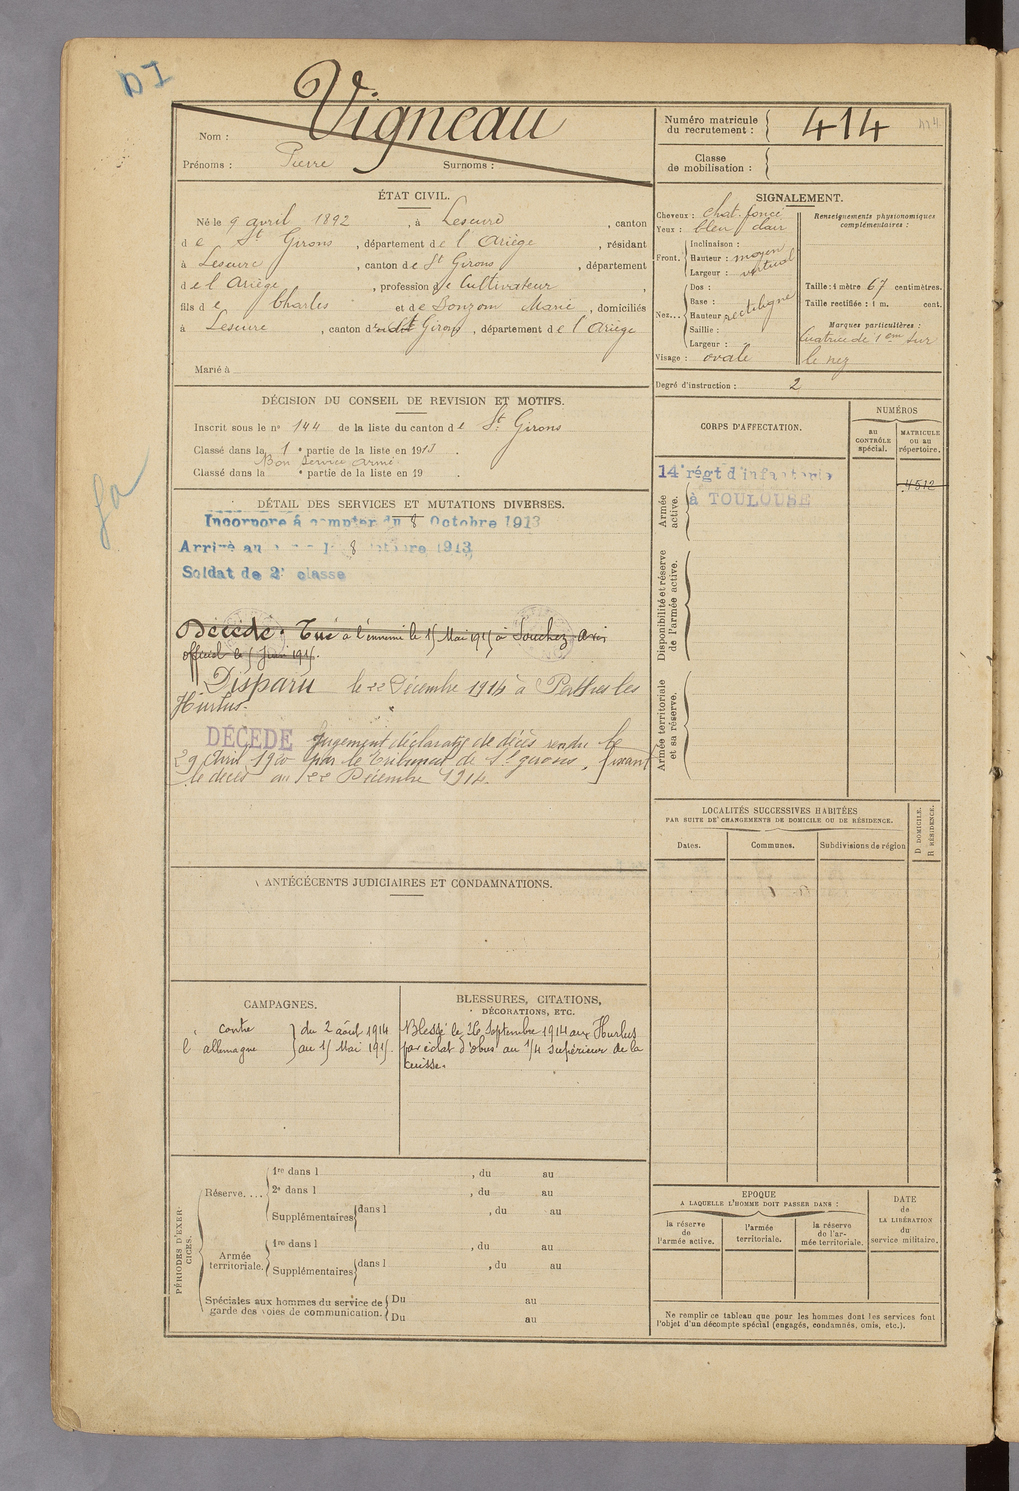 DI
Nom : Vigneau
Prénoms : Pierre Surnoms :
Numéro matricule du recrutement : 414
Classe de mobilisation :
ÉTAT CIVIL.
Né le 9 avril 1892, à Lescure, canton
de St Girons, département de l'Ariège, résidant
à Lescure, canton de St Girons, département
de l'Ariège, profession de Cultivateur,
fils de Charles et de Souzom Marie, domiciliés
à Lescure, canton de St Girons, département de l'Ariège
Marié à
SIGNALEMENT.
Cheveux : chat. foncé
Yeux : bleu clair
Front. Inclinaison :
Hauteur : moyen
Largeur : vertical
Nez... Dos :
Base :
Hauteur rectiligne
Saillie :
Largeur :
Visage : ovale
Renseignements physionomiques complémentaires :
Taille : 1 mètre 67 centimètres.
Taille rectifiée : 1 m. cent.
Marques particulières :
Cicatrice de 1 em sur
le nez
Degré d'instruction : 2
DÉCISION DU CONSEIL DE REVISION ET MOTIFS.
Inscrit sous le nº 144 de la liste du canton de St Girons
Classé dans la 1e partie de la liste en 1913.
Bon Service armé.
Classé dans la e partie de la liste en 19 .
DÉTAIL DES SERVICES ET MUTATIONS DIVERSES.
Incorporé à compter du 8 Octobre 1913
Arrivé au 8 octobre 1913
Soldat de 2e classe
Décédé. Tué à l'ennemi le 15 Mai 1915 à Souchez, avis
officiel le 5 Juin 1915.
Disparu le 22 Décembre 1914 à Perthes les
Hurlus.
DÉCÉDÉ Jugement déclaratif de décès rendu le
29 Avril 1920 par le Tribunal de St girons, fixant
le décès au 22 Décembre 1914.
CORPS D'AFFECTATION.
NUMÉROS
au CONTRÔLE spécial.
MATRICULE ou au répertoire.
Armée active.
14e régt d'infanterie
à TOULOUSE
4512
Disponibilité et réserve de l'armée active.
Armée territoriale et sa réserve.
LOCALITÉS SUCCESSIVES HABITÉES
PAR SUITE DE CHANGEMENTS DE DOMICILE OU DE RÉSIDENCE.
Dates. Communes. Subdivisions de région
D DOMICILE. R RÉSIDENCE.
ANTÉCÉCENTS JUDICIAIRES ET CONDAMNATIONS.
CAMPAGNES.
contre l'allemagne } du 2 août 1914
au 15 Mai 1915.
BLESSURES, CITATIONS,
DÉCORATIONS, ETC.
Blessé le 26 Septembre 1914 aux Hurlus
par éclat d'obus au 1/4 supérieur de la
cuisse.
PÉRIODES D'EXERCICES.
Réserve.... 1re dans l , du au
2e dans l , du au
Supplémentaires dans l , du au
Armée territoriale. 1re dans l , du au
Supplémentaires dans l , du au
Spéciales aux hommes du service de garde des voies de communication. Du au
Du au
EPOQUE
A LAQUELLE L'HOMME DOIT PASSER DANS :
la réserve de l'armée active.
l'armée territoriale.
la réserve de l'armée territoriale.
DATE de LA LIBÉRATION du service militaire.
Ne remplir ce tableau que pour les hommes dont les services font
l'objet d'un décompte spécial (engagés, condamnés, omis, etc.).